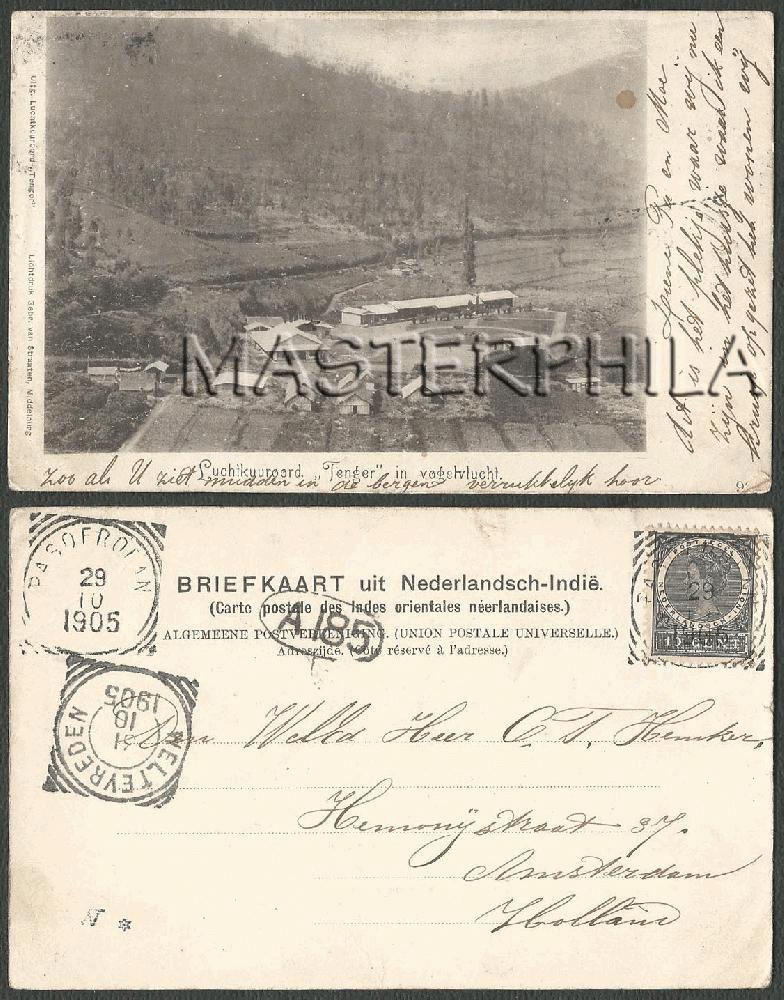 Uitg. Luchtkuuroord „Tenger”.
Lichtdruk Gebr. van Straaten, Middelburg
MASTERPHILA
Luchtkuuroord „Tenger” in vogelvlucht.
Zoo als U ziet midden in de bergen verrukkelijk hoor
Pa en Moe
dit is het plekje waar wij nu
zijn en het huisje waar ik een
kruis op gezet heb wonen wij
PASOEROEAN
29
10
1905
BRIEFKAART uit Nederlandsch-Indië.
(Carte postale des Indes orientales néerlandaises.)
ALGEMEENE POSTVEREENIGING. (UNION POSTALE UNIVERSELLE.)
Adreszijde. (Côté réservé à l'adresse.)
A.185
29
1905
WELTEVREDEN
31
10
1905
Den Weled Heer C. T. Hemker,
Hemonystraat 37.
Amsterdam
Holland
N *